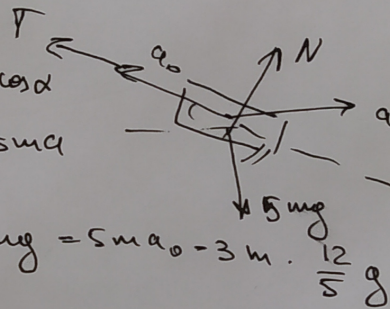 T
a₀
N
cosα
a
5ma
5mg
mg = 5ma₀ - 3m · 12/5 g